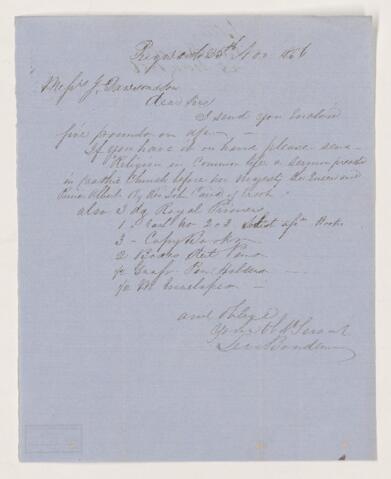 25th Nov 1856
Messrs J. Dawson & Son
Dear Sirs
I send you Enclosed
five pounds on a/c
If you have it on hand please send
Religion in Common life a sermon preached
in Crathie Church before her Majesty the Queen and
Prince Albert By Rev John Caird of
also 3 dz Royal Primers
1 Each No 2 & 3 Books
3 - Copy Books
2 Boxes Pens
Pen Holders
½ M Envelopes
and Oblige
Your Obt Servant
Levi